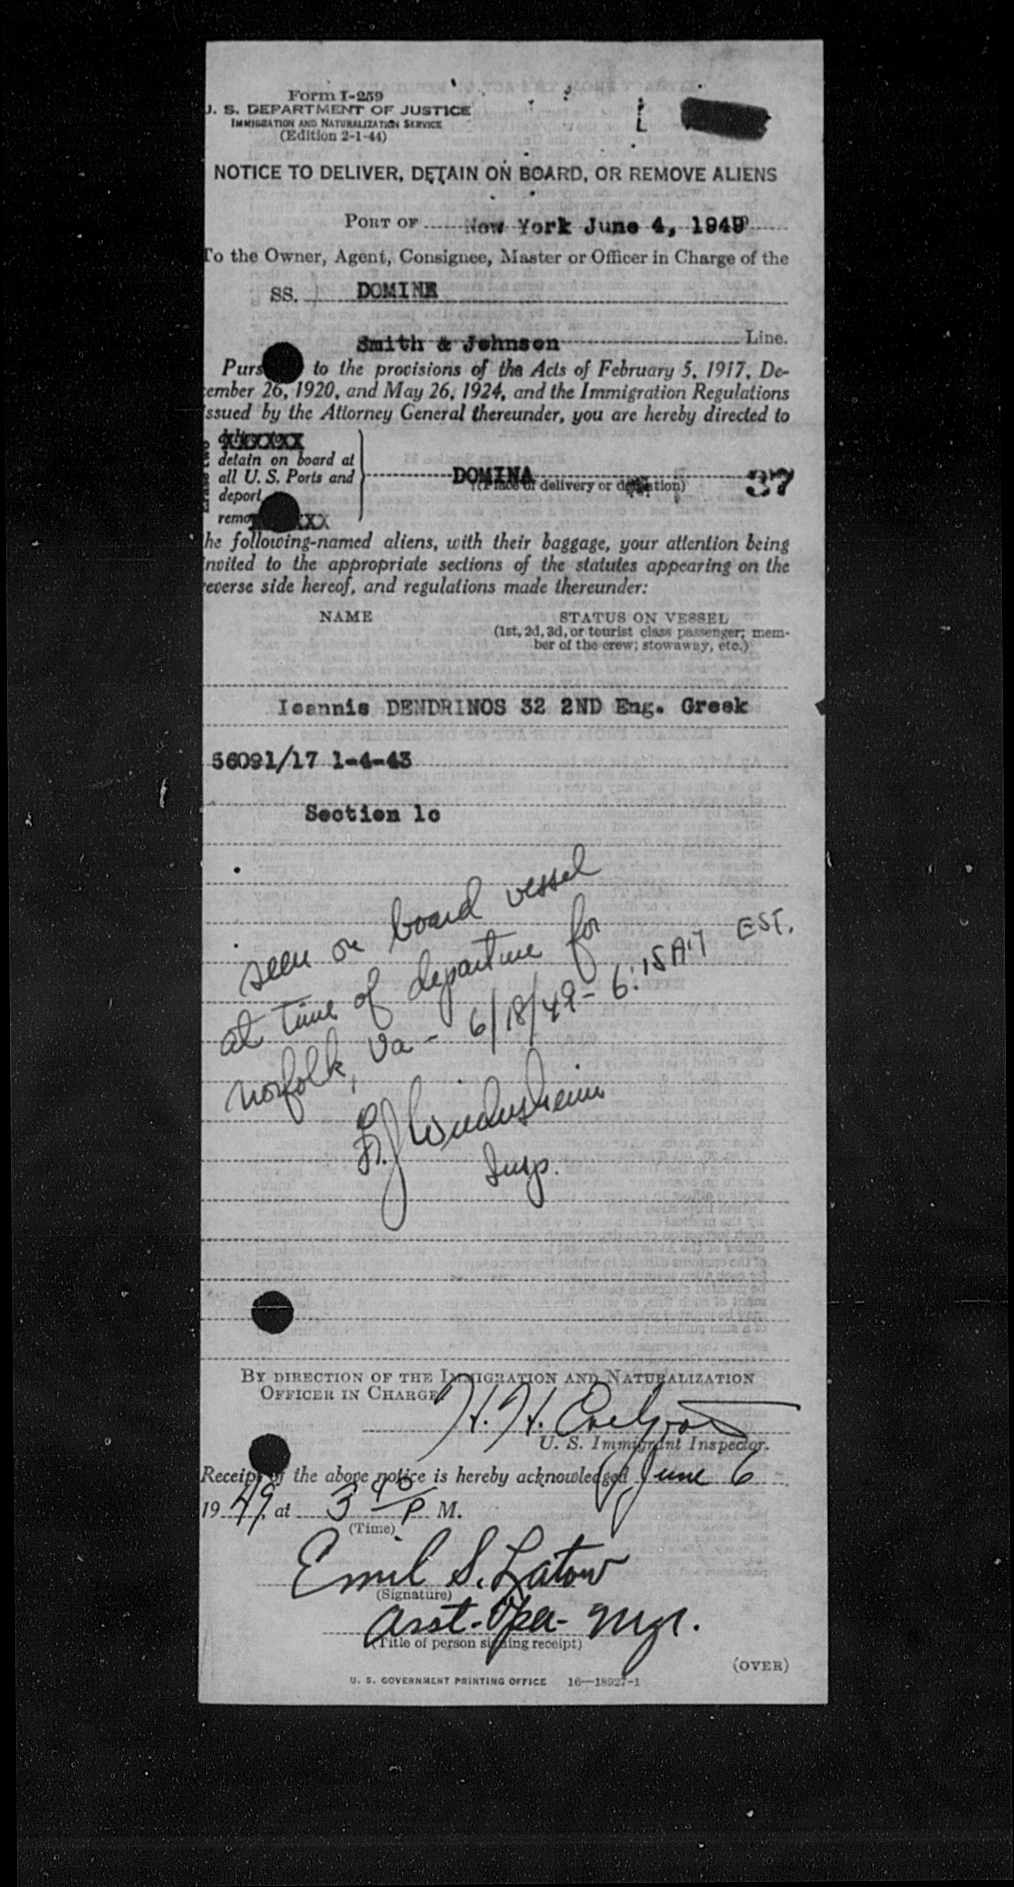 Form I-259
U. S. DEPARTMENT OF JUSTICE
IMMIGRATION AND NATURALIZATION SERVICE
(Edition 2-1-44)
NOTICE TO DELIVER, DETAIN ON BOARD, OR REMOVE ALIENS
PORT OF New York June 4, 1949
To the Owner, Agent, Consignee, Master or Officer in Charge of the
SS. DOMINA
Smith & Johnson Line.
Purs to the provisions of the Acts of February 5, 1917, De-
cember 26, 1920, and May 26, 1924, and the Immigration Regulations
issued by the Attorney General thereunder, you are hereby directed to
XXXXXX
detain on board at
all U. S. Ports and
deport
DOMINA 37
(Place of delivery or detention)
remo XX
the following-named aliens, with their baggage, your attention being
invited to the appropriate sections of the statutes appearing on the
reverse side hereof, and regulations made thereunder:
NAME STATUS ON VESSEL
(1st, 2d, 3d, or tourist class passenger; mem-
ber of the crew; stowaway, etc.)
Ioannis DENDRINOS 32 2ND Eng. Greek
56091/17 1-4-43
Section 1c
seen on board vessel
at time of departure for
Norfolk, Va - 6/18/49 - 6:15AM EST.
Insp.
BY DIRECTION OF THE IMMIGRATION AND NATURALIZATION
OFFICER IN CHARGE
H. H.
U. S. Immigrant Inspector.
Receipt of the above notice is hereby acknowledged June 6
1949, at 3 40 P M.
(Time)
Emil S. Latow
(Signature)
Asst. Oper. Mgr.
(Title of person signing receipt)
(OVER)
U. S. GOVERNMENT PRINTING OFFICE 16—18927-1